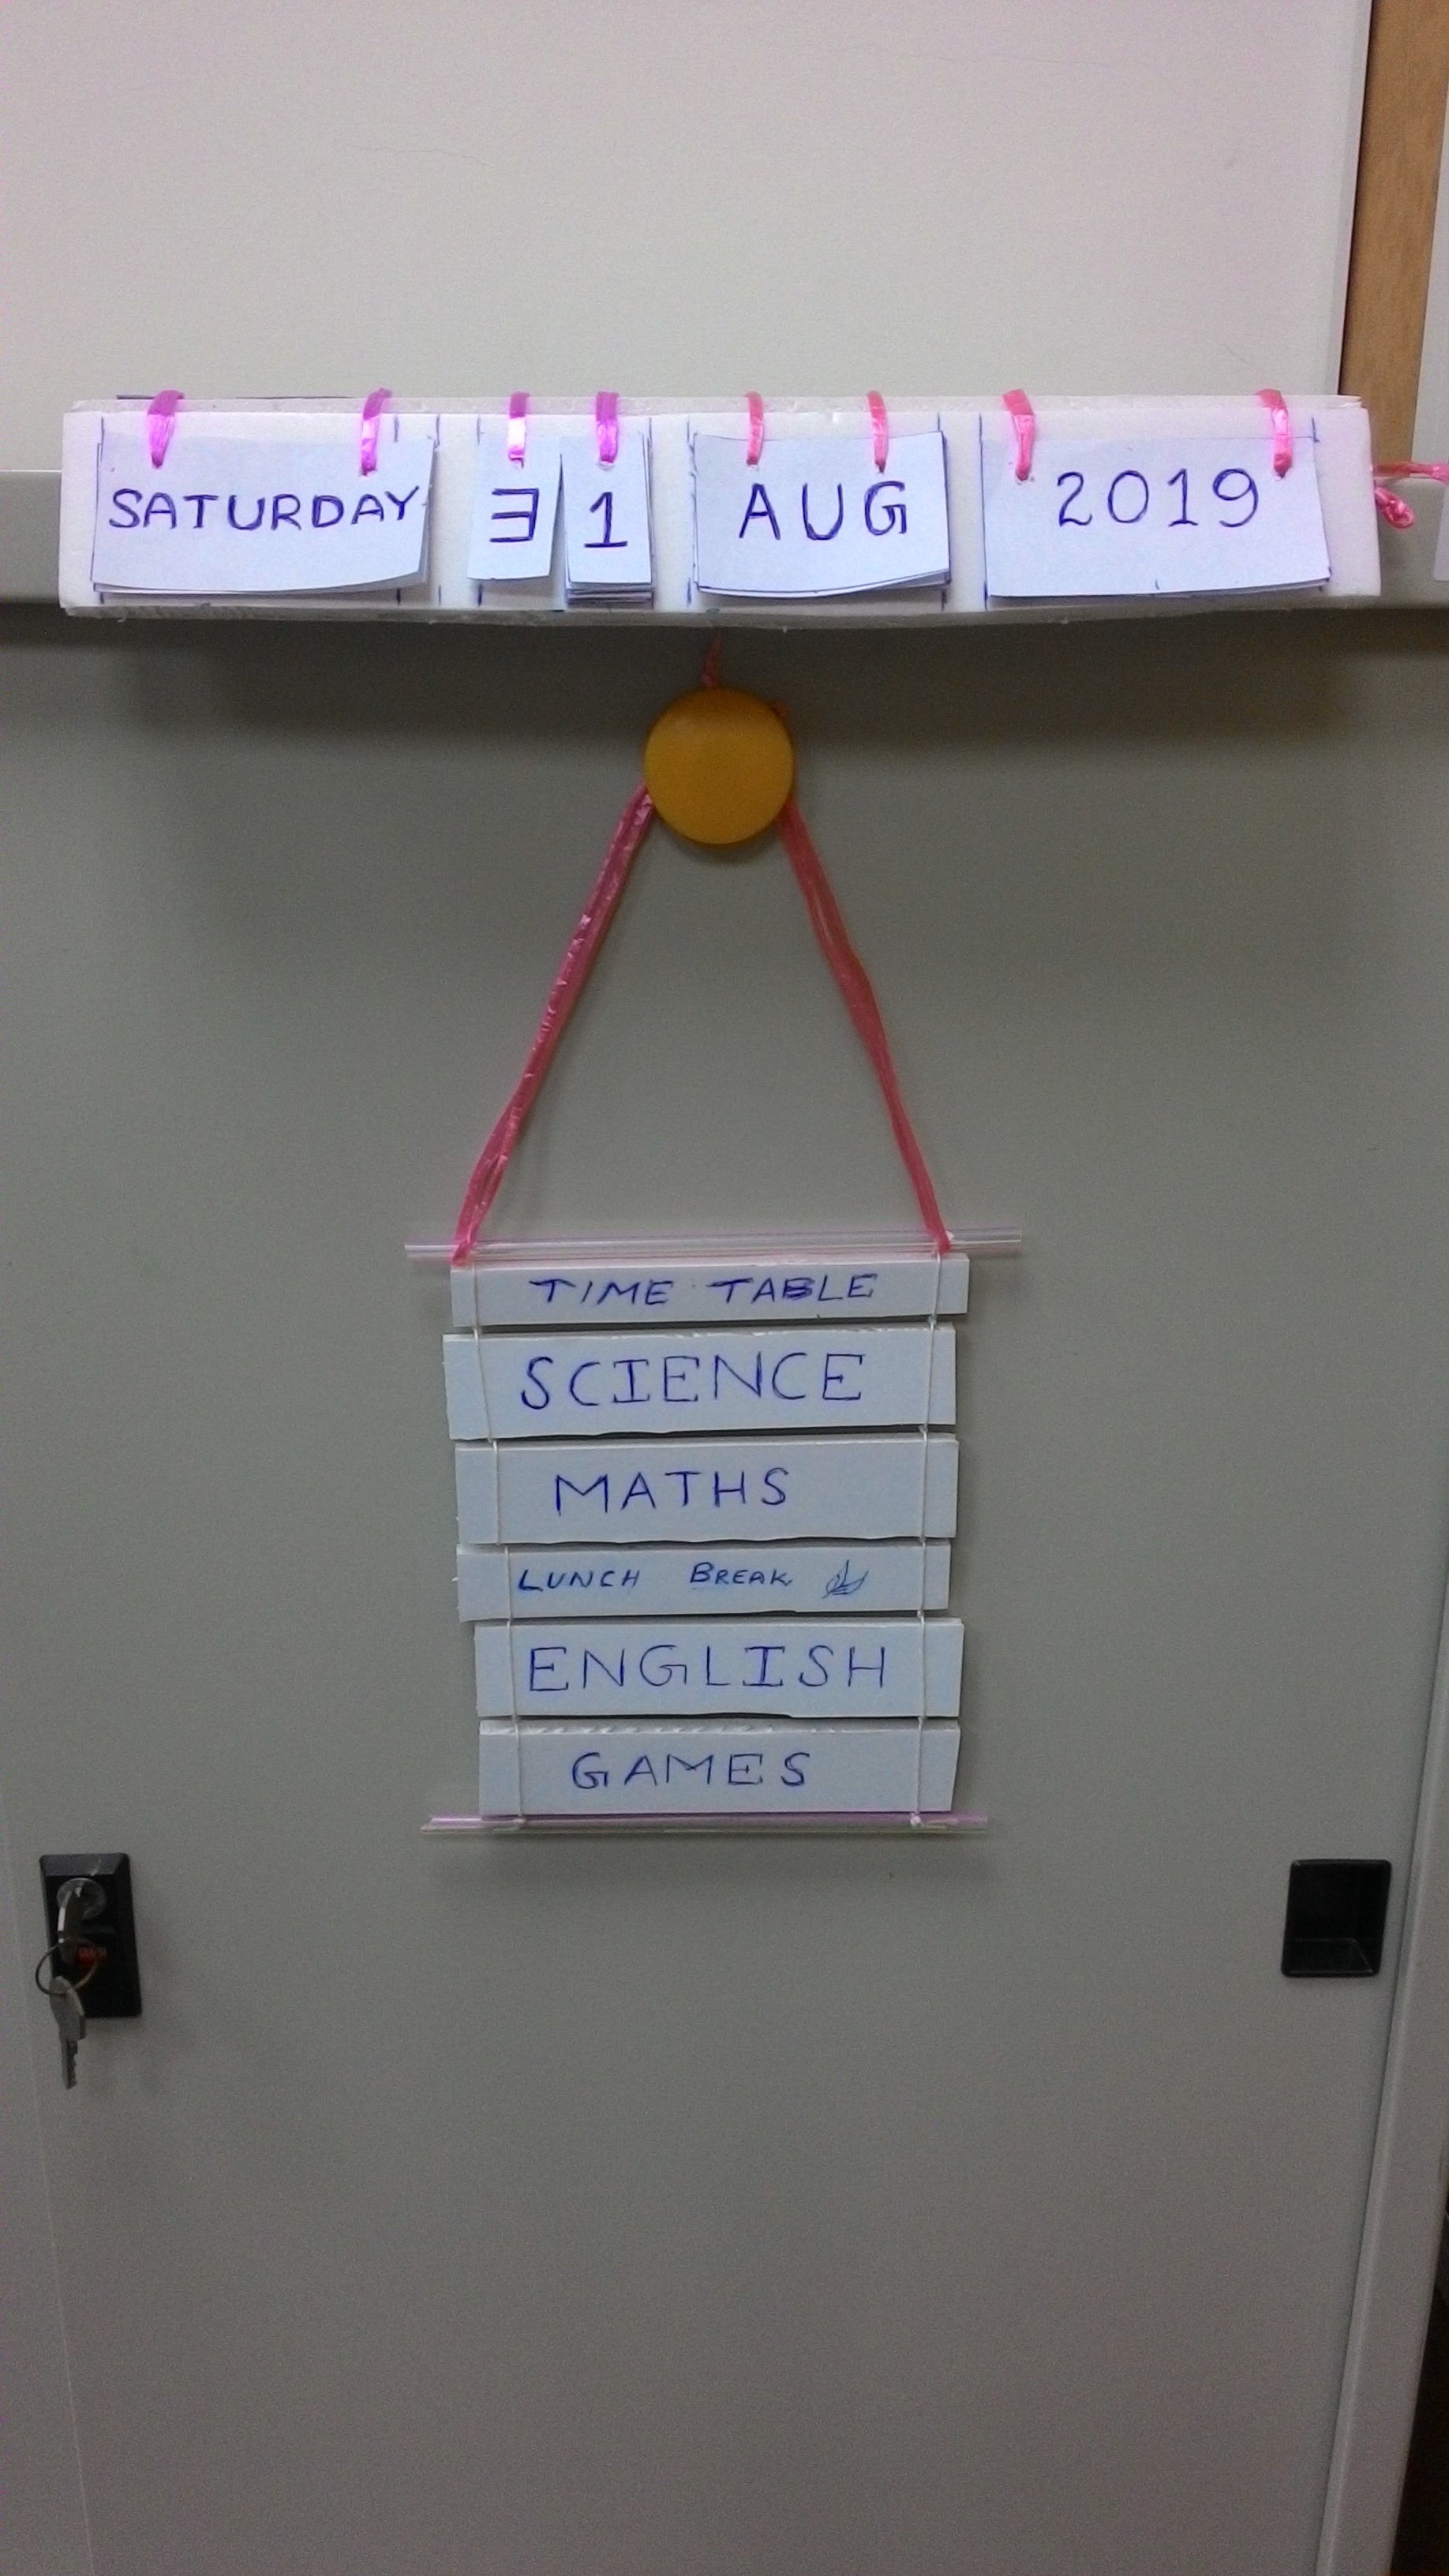 SATURDAY 31 AUG 2019
TIME TABLE
SCIENCE
MATHS
LUNCH BREAK
ENGLISH
GAMES